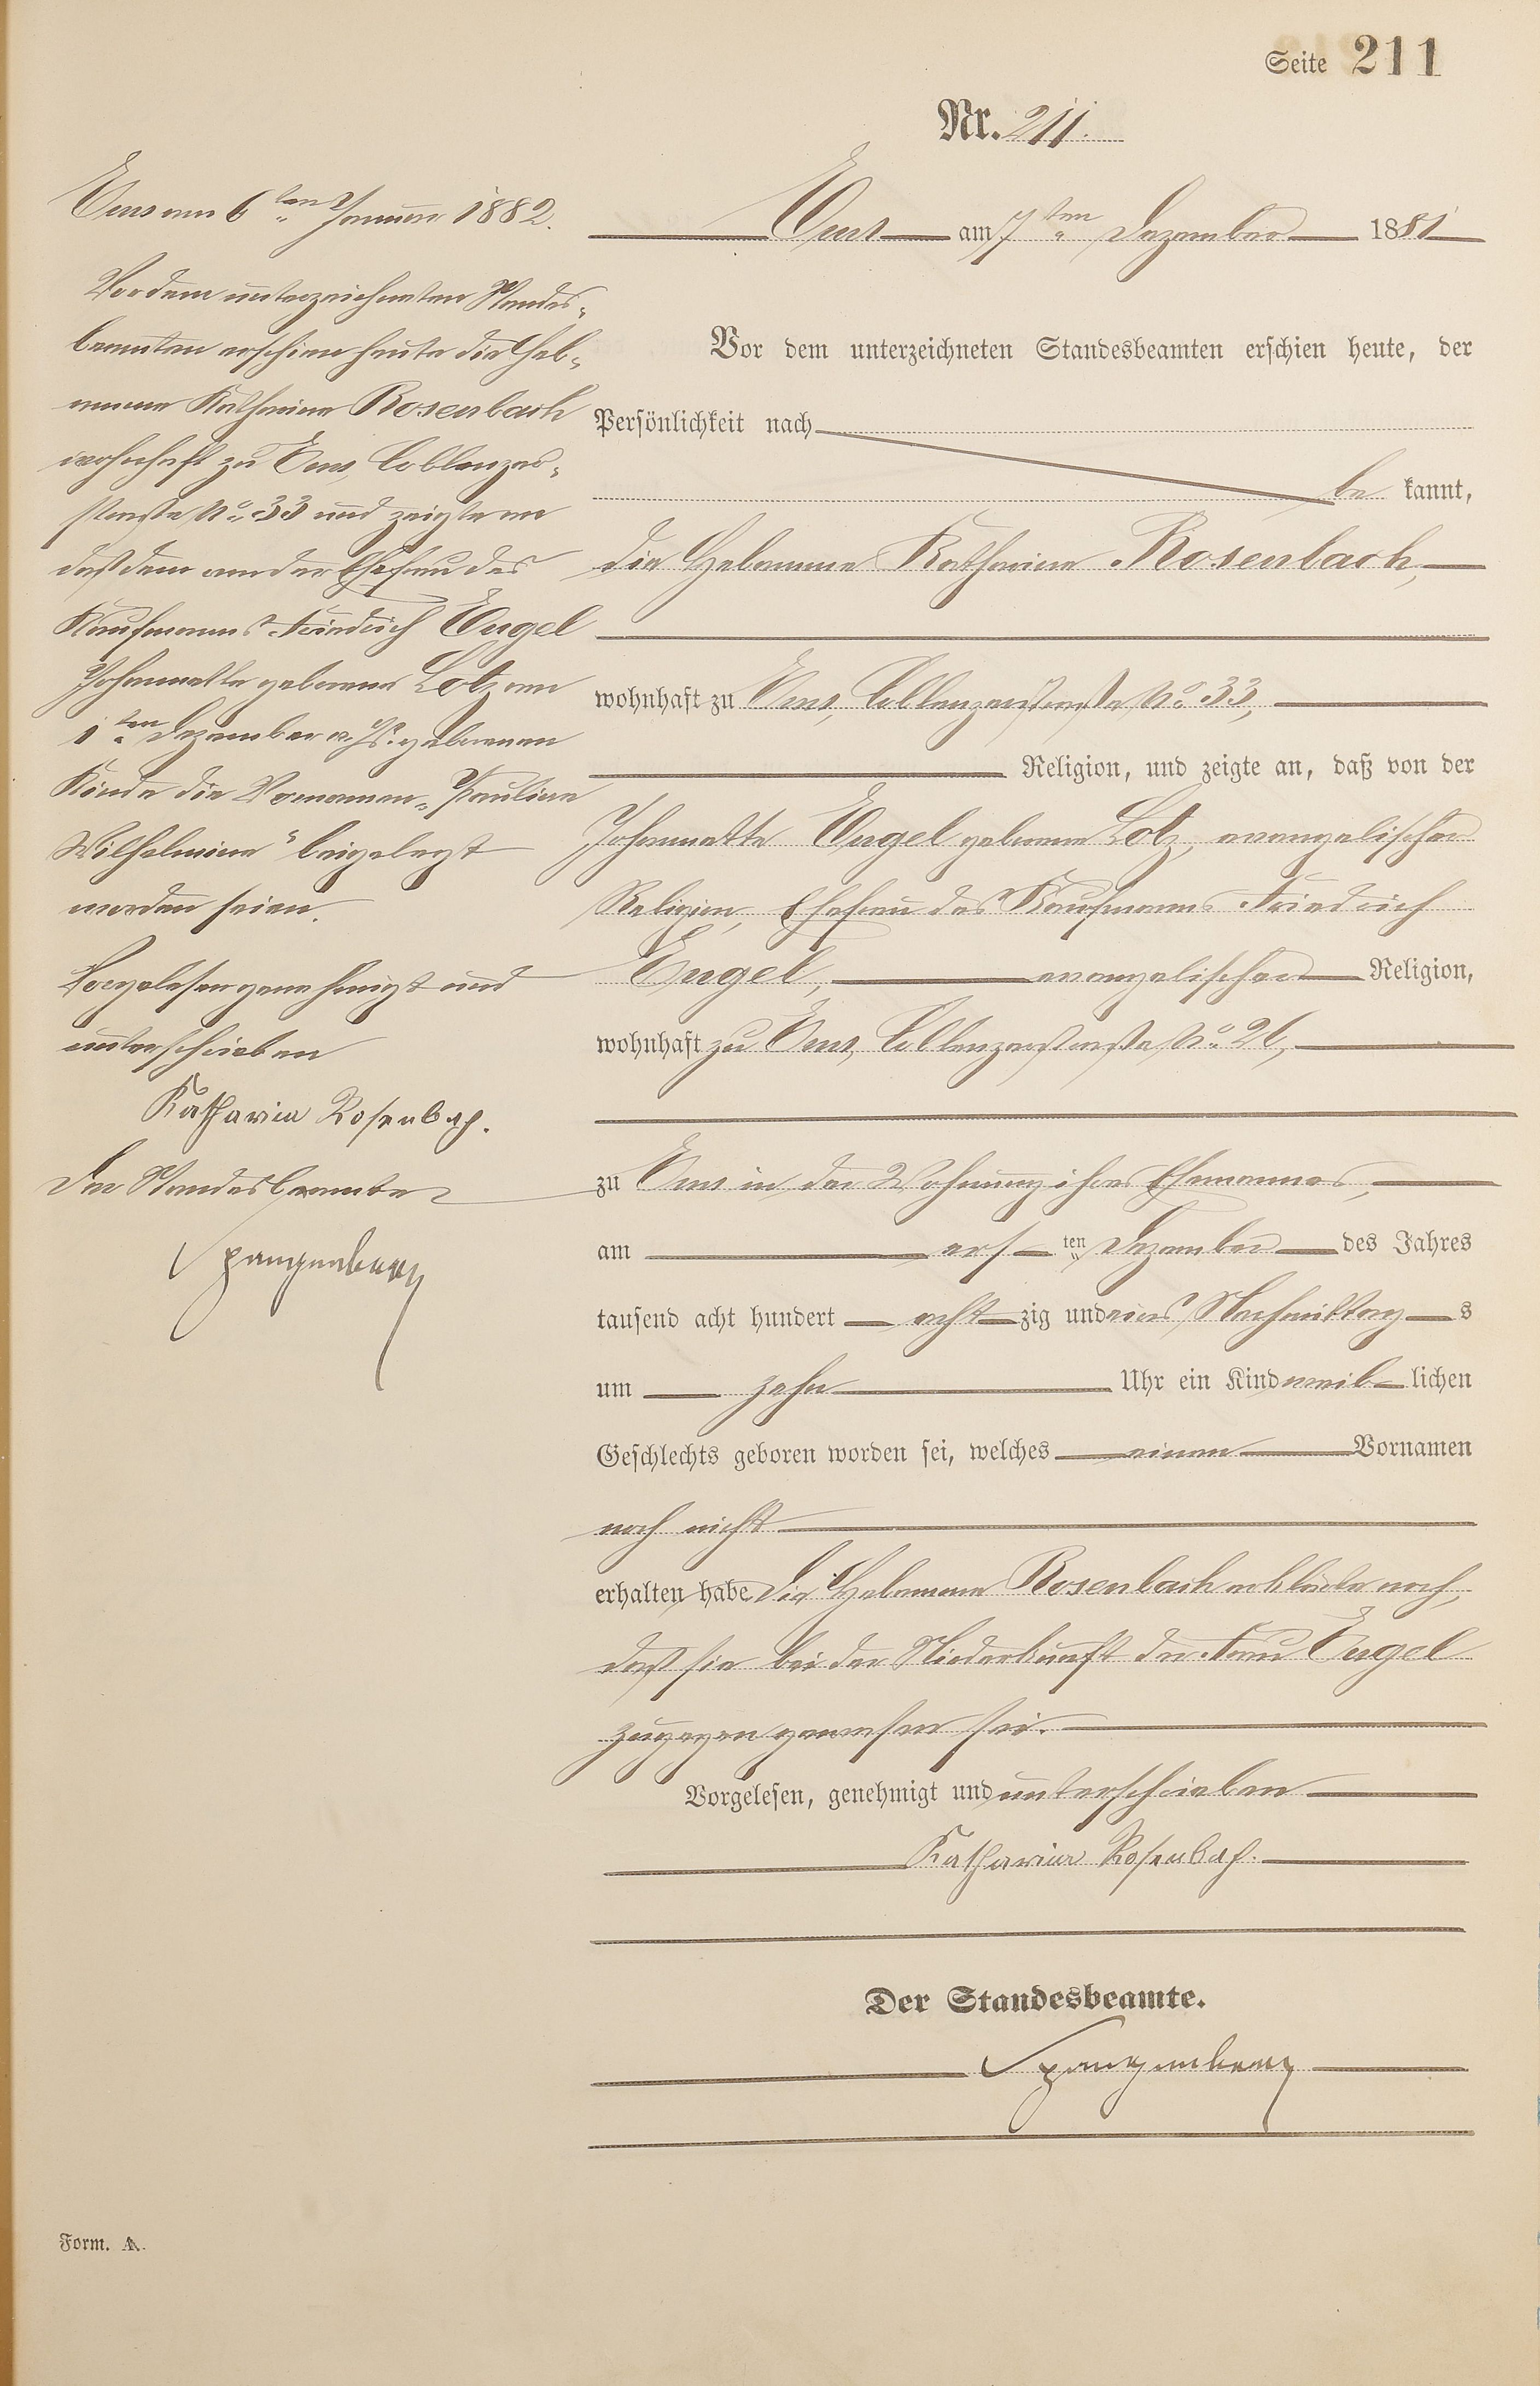 Seite 211
Nr. 211.
Ems am 6ten Januar 1882.
Vor dem unterzeichneten Standes-
beamten erschien heute die Heb-
amme Katharina Rosenbach
wohnhaft zu Ems, Coblenzer-
straße No. 33 und zeigte an
daß dem von der Ehefrau des
Kaufmanns Friedrich Engel
Johannette geborene Lotz am
1ten Dezember v. Js. geborenen
Kinde die Vornamen „Pauline
Wilhelmine" beigelegt
worden seien.
Vorgelesen genehmigt und
unterschrieben
Katharina Rosenbach.
Der Standesbeamte
Spangenberg
Ems am 7ten Dezember 1881
Vor dem unterzeichneten Standesbeamten erschien heute, der
Persönlichkeit nach
be kannt,
die Hebamme Katharina Rosenbach,
wohnhaft zu Ems, Coblenzerstraße No. 33,
Religion, und zeigte an, daß von der
Johannette Engel geborene Lotz, evangelischer
Religion, Ehefrau des Kaufmanns Friedrich
Engel, evangelischer Religion,
wohnhaft zu Ems, Coblenzerstraße No. 26,
zu Ems in der Wohnung ihres Ehemannes,
am ers ten Dezember des Jahres
tausend acht hundert acht zig und eins Nachmittag s
um zehn Uhr ein Kind weib lichen
Geschlechts geboren worden sei, welches einen Vornamen
noch nicht
erhalten habe. Die Hebamme Rosenbach erklärte noch,
daß sie bei der Niederkunft der Frau Engel
zugegen gewesen sei.
Vorgelesen, genehmigt und unterschrieben
Katharina Rosenbach.
Der Standesbeamte.
Spangenberg
Form. A.